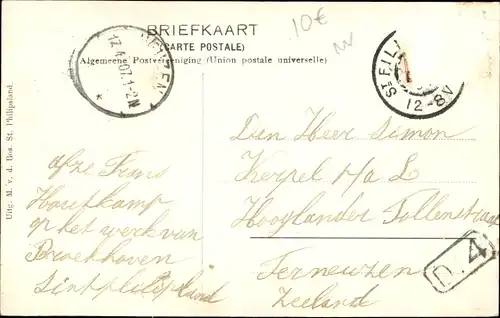 BRIEFKAART
(CARTE POSTALE)
Algemeene Postvereeniging (Union postale universelle)
10€
NEUZEN
17.4.07.1-2N
ST FILI
12-8V
Uitg. M. v. d. Bos. St. Philipsland.
Afze Frans
Houtkamp
op het werk van
Broekhoven
Sintphilipsland
Den Heer Simon
Kerpel
Hooglander Tollenstraat
n. 4
Terneuzen
Zeeland